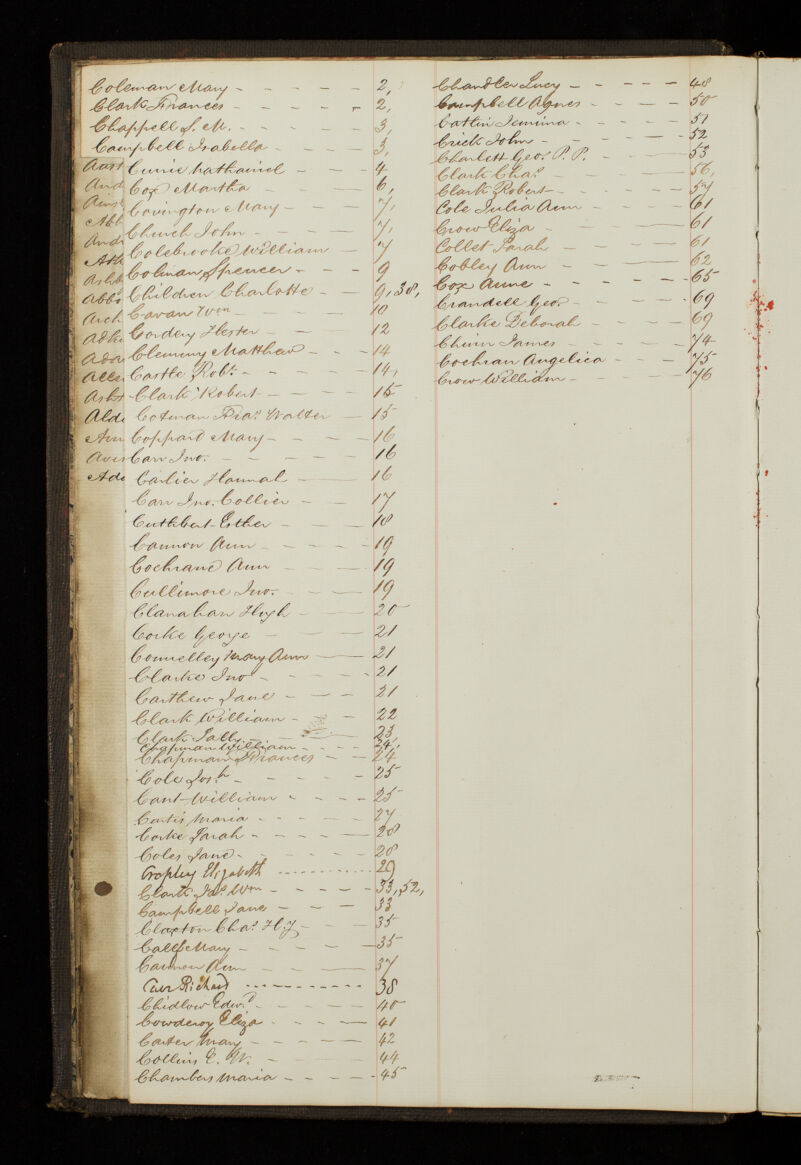 Coleman Mary - - - - - 2,
Clark Frances - - - - - 2,
Chappell S. M. - - - - - 3,
Campbell Isabella - - - - 3,
Currie Nathaniel - - - 4
Cox Martha - - - - 6,
Covington Mary - - - 7,
Church John - - - - 7,
Colebrooke William - 7
Colman Spencer - - - 9
Children Charlotte - - 9, 38,
Cavan Wm - - - - 10
Cordery Hester - - - 12
Clemeny Matthew - - - 14
Castle Robt. - - - - 14,
Clark Robert - - - - 15
Cotman Fras. Walter - 15
Coppard Mary - - - - 16
Carr Jno. - - - - - 16
Carlier Hannah - - 16
Carr Jno. Collier - - 17
Cuthbert Esther - - - 18
Cannon Ann - - - - - 19
Cochrane Ann - - - 19
Cullimore Jno. - - - 19
Clanahan Hugh - - 20
Corke George - - - 21
Connelley Mary Ann - 21
Clarke Jno - - - - - 21
Carthew Jane - - - 21
Clark William - - 22
Clark Sally - - 23
Chapman William - - - - 24,
Chapman Frances - - 24
Cole Josh - - - - - 25
Cant William - - - - 25
Curtis Maria - - - - 27
Corke Sarah - - - - 28
Coles Jane - - - - - 28
Cropley Elizabeth - - - 29
Clark Jas. Wm - - - - 33, 52,
Campbell Jane - - - 33
Claxton Chas. H. J. - - 35
Mary - - - - 35
Cannon Ann - - - - 37
Carr Richard - - - - 38
Chidlow Edwd. - - - - 40
Cowderoy Eliza - - - - 41
Carter Mary - - - - 42
Collins E. W. - - - 44
Chambers Maria - - - - 45
Aust
And
Abb
Andr
Ath
Ashb
Abbo
Arch
Adki
Ada
Alle
Asht
Alde
Avis
Ada
Chandler Lucy - - - - - 48
Campbell Agnes - - - - 50
Catlin Jemima - - - - - 51
Crick John - - - - - 52
Charlett Geo. P. P. - - - 53
Clark Chas. - - - - 56,
Clark Robert - - - - 57
Cole Julia Ann - - - - 61
Crow Eliza - - - 61
Collet Sarah - - - - 61
Cobley Ann - - - 62
Cox Anne - - - - - 65
Crandell Geo. - - - - 69
Clarke Deborah - - - 69
Chinn James - - - - 74
Cochran Angelica - - - 75
Crow William - - - 76